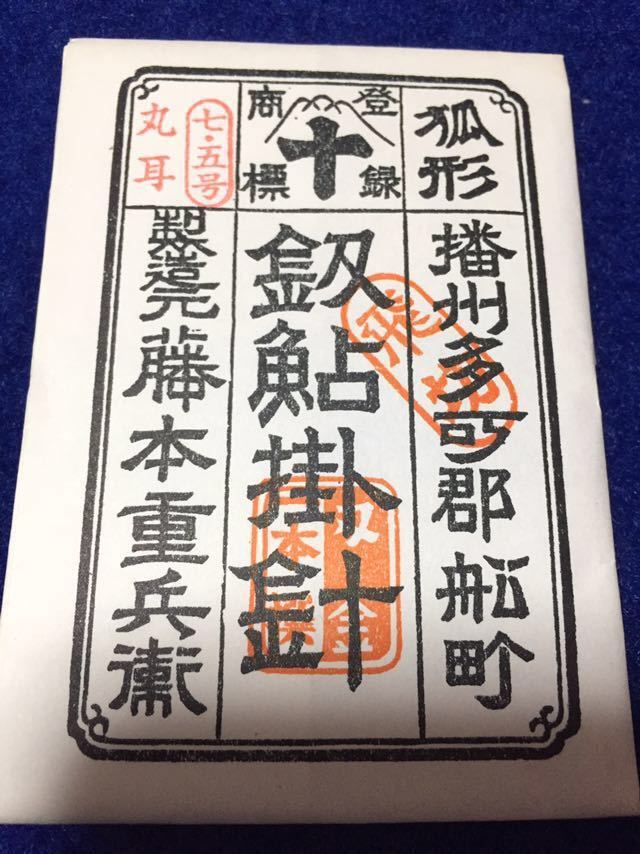 狐形
播州多可郡舩町
登録
商標
十
釼鮎掛針
七・五号
丸耳
製造元藤本重兵衞